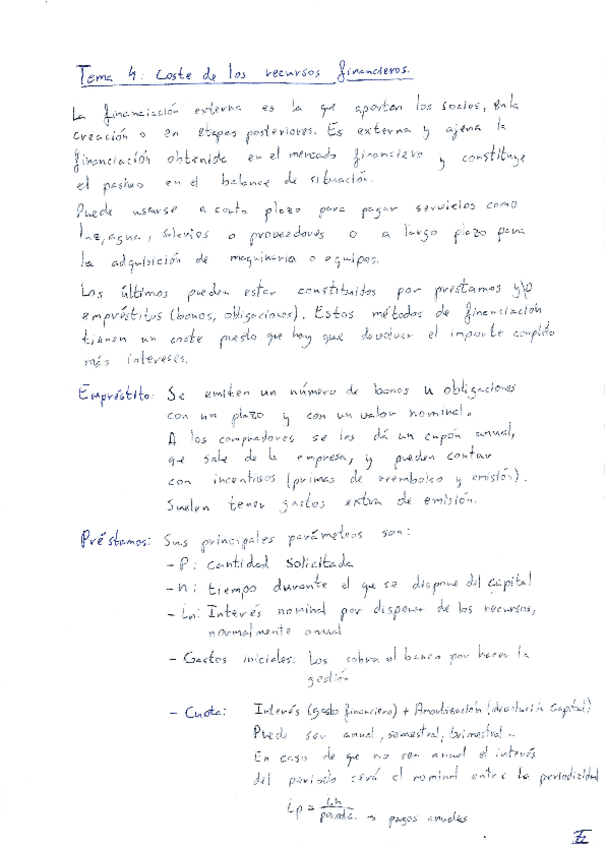 Tema 4: Coste de los recursos financieros.
La financiación externa es la que aportan los socios, en la
creación o en etapas posteriores. Es externa y ajena la
financiación obtenida en el mercado financiero y constituye
el pasivo en el balance de situación.
Puede usarse a corto plazo para pagar servicios como
luz, agua, salarios o proveedores o a largo plazo para
la adquisición de maquinaria o equipos.
Los últimos pueden estar constituidos por préstamos y/o
empréstitos (bonos, obligaciones). Estos métodos de financiación
tienen un coste puesto que hay que devolver el importe cumplido
más intereses.
Empréstito: Se emiten un número de bonos u obligaciones
con un plazo y con un valor nominal.
A los compradores se les dá un cupón anual,
que sale de la empresa, y pueden contar
con incentivos (primas de reembolso y emisión).
Suelen tener gastos extra de emisión.
Préstamos: Sus principales parámetros son:
- P: Cantidad Solicitada
- n: tiempo durante el que se dispone del capital
- in: Interés nominal por disponer de los recursos,
normalmente anual
- Gastos iniciales: Los cobra el banco por hacer la
gestión
- Cuota: Interés (gasto financiero) + Amortización (devolución Capital)
Puede ser anual, semestral, trimestral...
En caso de que no sea anual el interés
del periodo será el nominal entre la periodicidad
ip = in / periodic. → pagos anuales